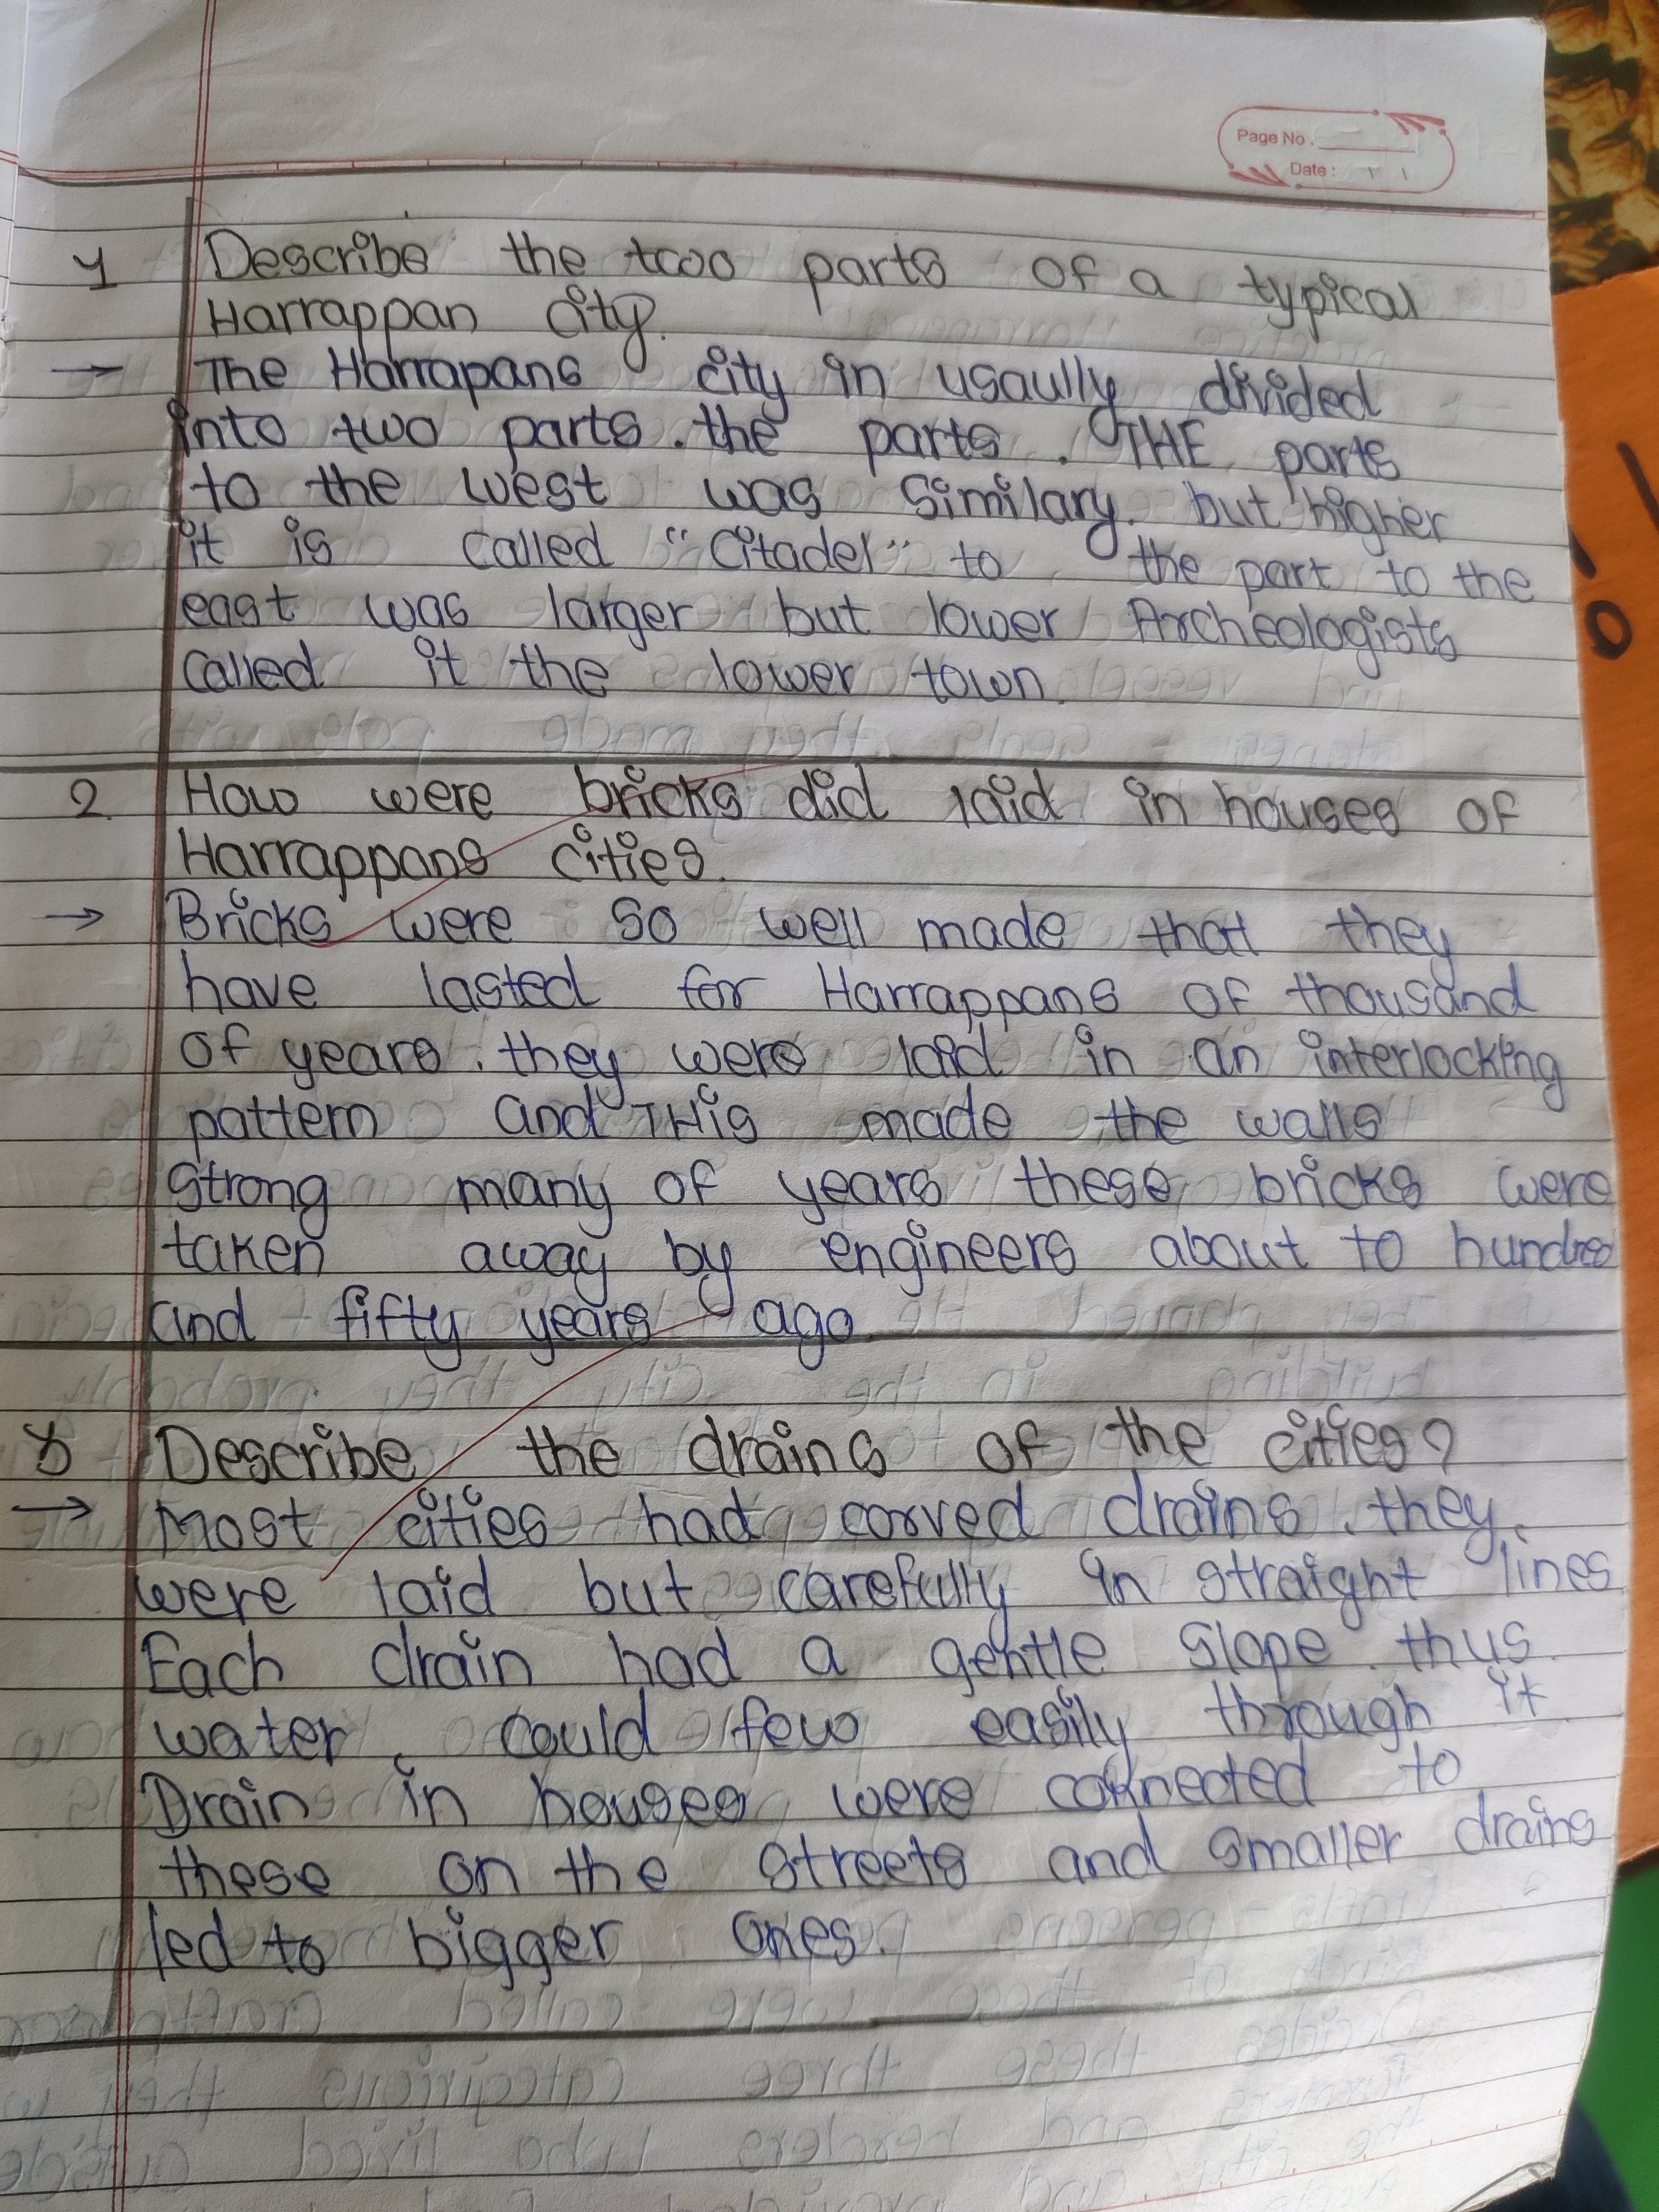 Page No.
Date:
1 Describe the two parts of a typical
Harrappan city.
→ The Harrapans city in usaully divided
into two parts. the parts. THE parts
to the west was Similary. but higher
it is called "Citadel" to the part to the
east was larger but lower Archeologists
called it the lower town.
2. How were bricks did laid in houses of
Harrappans cities.
→ Bricks were so well made that they
have lasted for Harrappans of thousand
of years. they were laid in an interlocking
pattern and THis made the walls
strong many of years these bricks were
taken away by engineers about to hundred
and fifty years ago.
Describe the drains of the cities?
→ Most cities had corved drains. they
were laid but carefully in straight lines
Each drain had a gentle slope. thus
water, could few easily through it
Drain in houses were connected to
these on the streets and smaller drains
led to bigger ones.